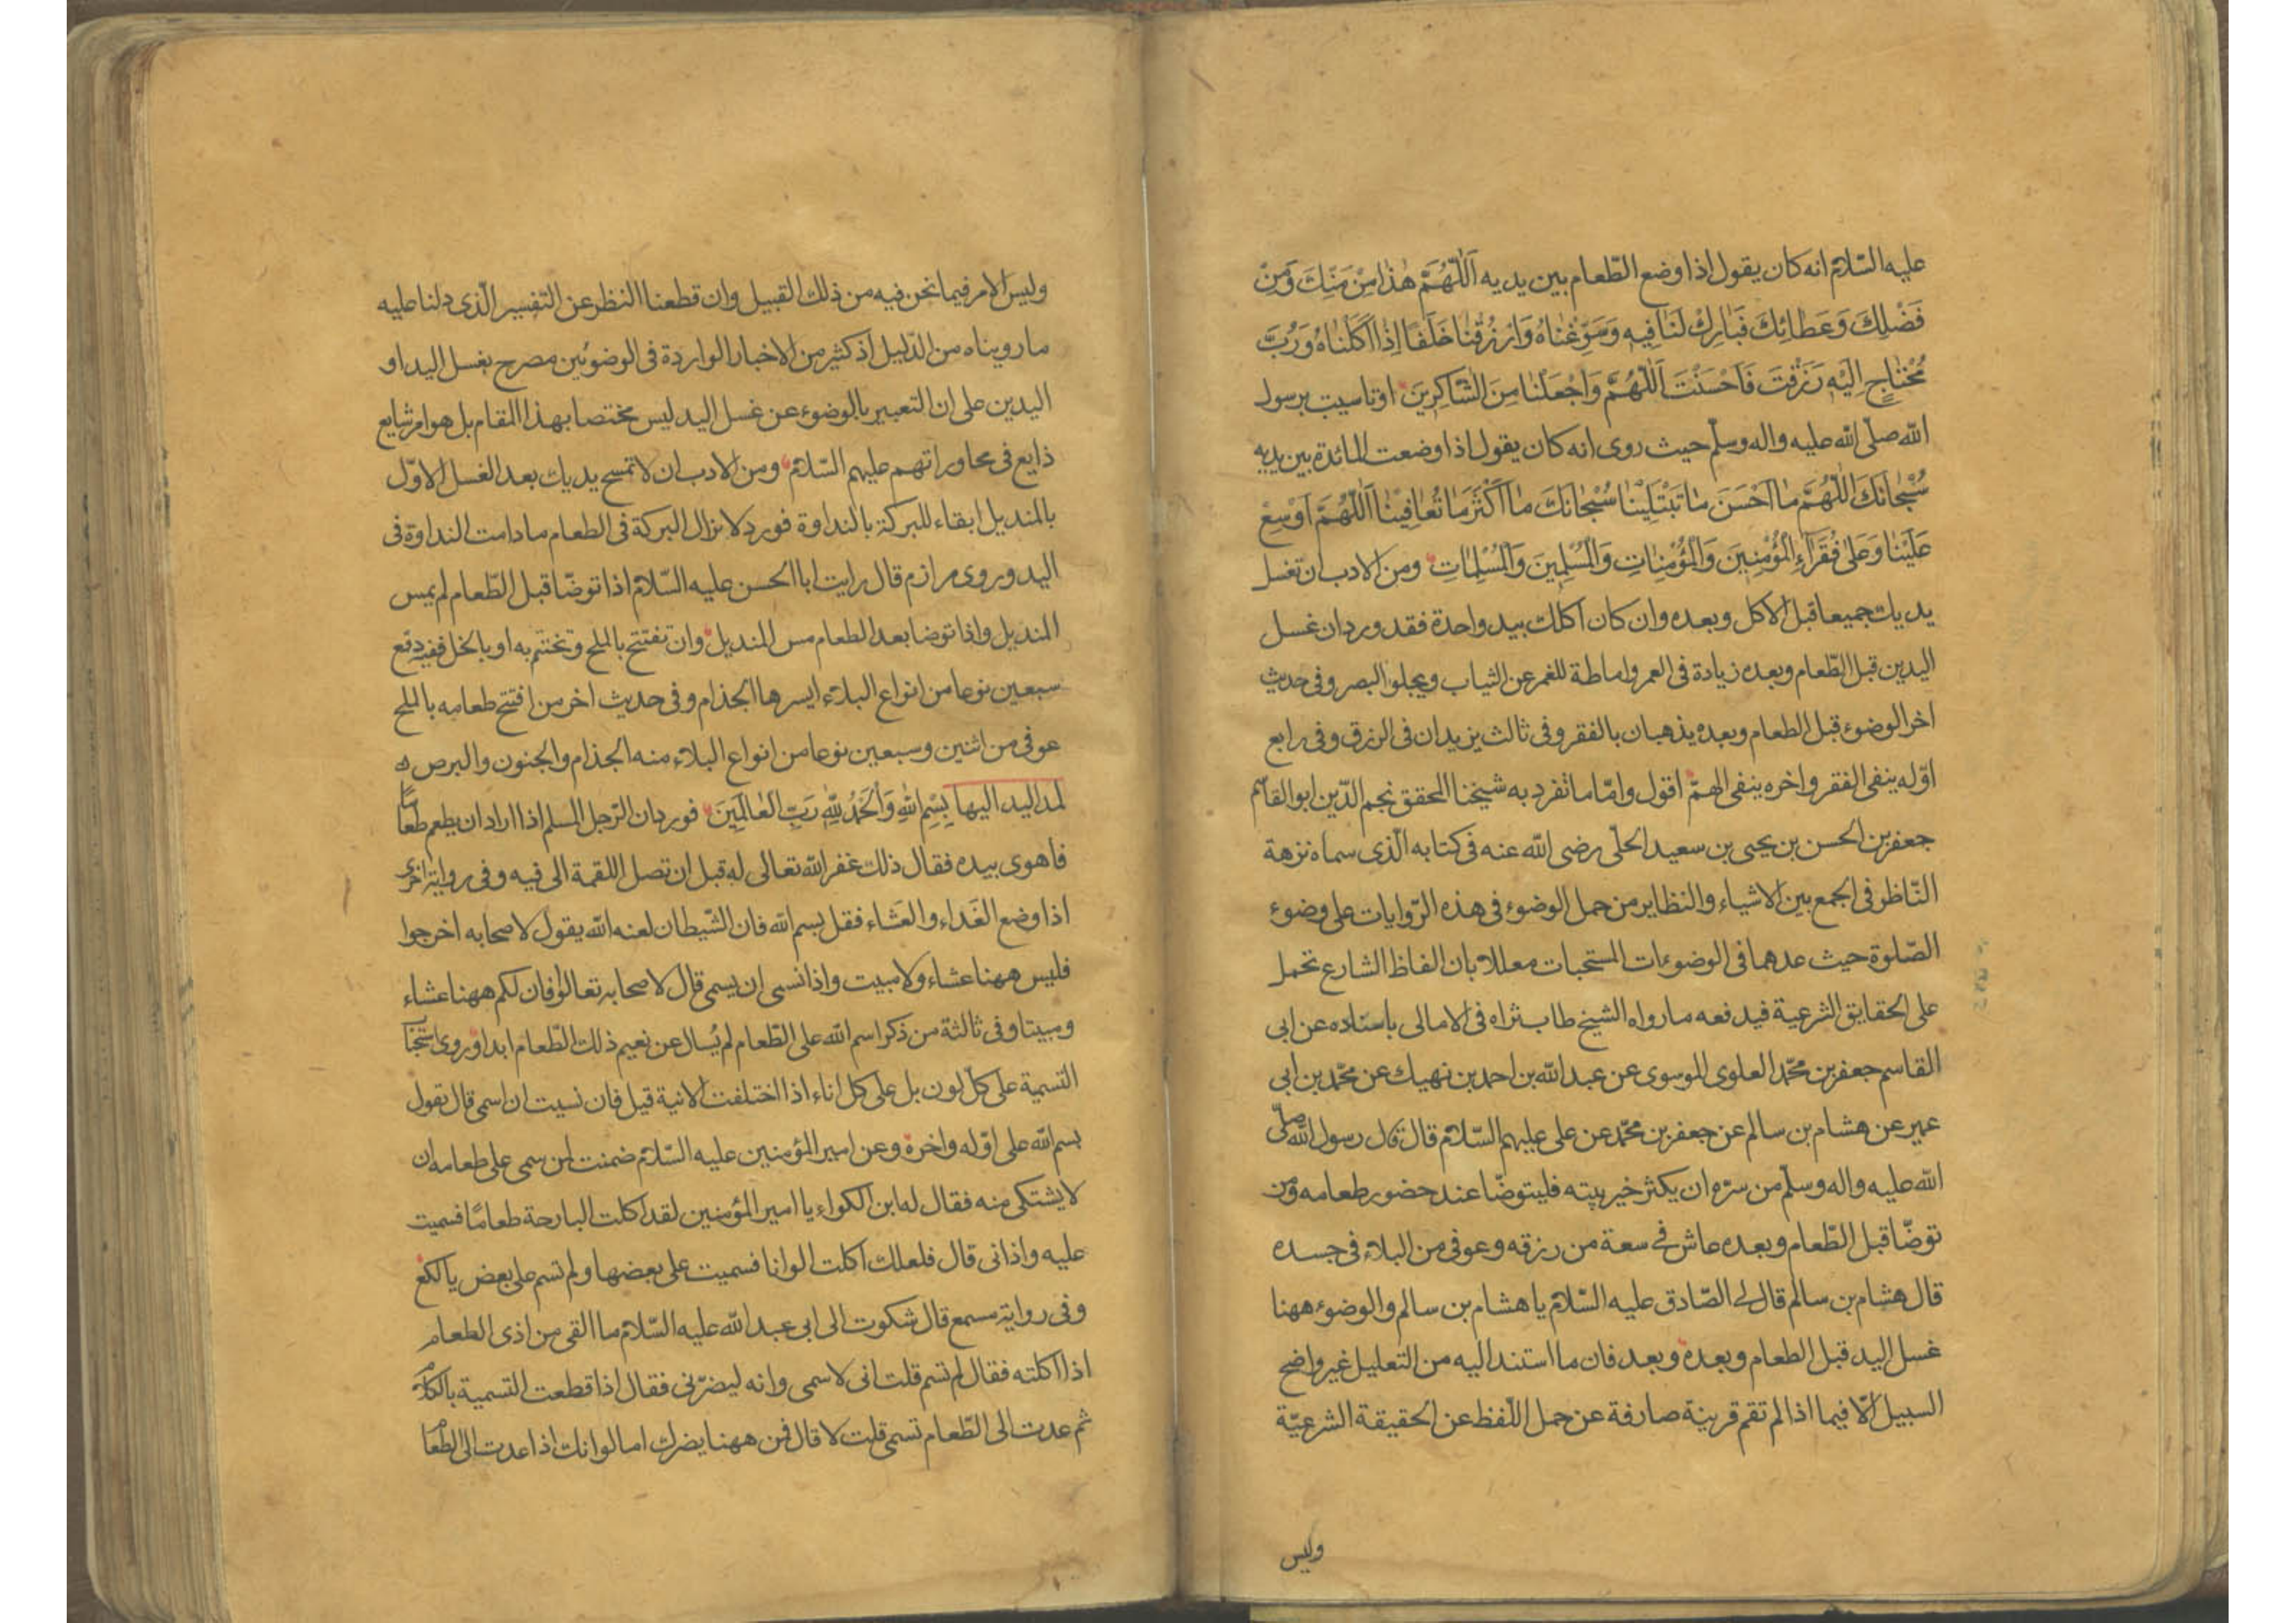 عليه السّلام انه كان يقول اذا وضع الطّعام بين يديه اَللّٰهُمَّ هٰذا مِنْ مَنِّكَ وَمِنْ
فَضْلِكَ وَعَطائِكَ فَبارِكْ لَنا فيهِ وَسَوِّغْناهُ وَارْزُقْنا خَلَفًا اِذا اَكَلْناهُ وَرُبَّ
مُحْتاجٍ اِلَيْهِ رَزَقْتَ فَاَحْسَنْتَ اَللّٰهُمَّ وَاجْعَلْنا مِنَ الشّاكِرينَ اوتاسيت برسول
الله صلّى الله عليه واله وسلّم حيث روى انه كان يقول اذا وضعت المائدة بين يديه
سُبْحانَكَ اللّٰهُمَّ ما اَحْسَنَ ما تَبْتَلينا سُبْحانَكَ ما اَكْثَرَ ما تُعافينا اَللّٰهُمَّ اَوْسِعْ
عَلَيْنا وَعَلى فُقَراءِ الْمُؤْمِنينَ وَالْمُؤْمِناتِ وَالْمُسْلِمينَ وَالْمُسْلِماتِ ومن الادب ان تغسل
يديك جميعا قبل الاكل وبعده وان كان اكلك بيد واحدة فقد ورد ان غسل
اليدين قبل الطّعام وبعده زيادة فى العمر واماطة للغمر عن الثياب ويجلو البصر وفى حديث
اخر الوضوء قبل الطعام وبعده يذهبان بالفقر وفى ثالث يزيدان فى الرزق وفى رابع
اوّله ينفى الفقر واخره ينفى الهمّ اقول وامّا ما تفرد به شيخنا المحقق نجم الدّين ابو القاسم
جعفر بن الحسن بن يحيى بن سعيد الحلّى رضى الله عنه فى كتابه الّذى سماه نزهة
النّاظر فى الجمع بين الاشياء والنظاير من حمل الوضوء فى هذه الرّوايات على وضوء
الصّلوة حيث عدهما فى الوضوءات المستحبات معللا بان الفاظ الشارع تحمل
على الحقايق الشرعية فيدفعه ما رواه الشيخ طاب ثراه فى الامالى باسناده عن ابى
القاسم جعفر بن محمّد العلوى الموسوى عن عبد الله بن احمد بن نهيك عن محمّد بن ابى
عمير عن هشام بن سالم عن جعفر بن محمّد عن على عليهم السّلام قال قال رسول الله صلّى
الله عليه واله وسلّم من سرّه ان يكثر خير بيته فليتوضّا عند حضور طعامه ومن
توضّا قبل الطّعام وبعده عاش فى سعة من رزقه وعوفى من البلاء فى جسده
قال هشام بن سالم قال لى الصّادق عليه السّلام يا هشام بن سالم والوضوء ههنا
غسل اليد قبل الطعام وبعده وبعد فان ما استند اليه من التعليل غير واضح
السبيل الّا فيما اذا لم تقم قرينة صارفة عن حمل اللّفظ عن الحقيقة الشرعيّة
وليس
وليس الامر فيما نحن فيه من ذلك القبيل وان قطعنا النظر عن التفسير الّذى دلنا عليه
ما رويناه من الدّليل اذ كثير من الاخبار الواردة فى الوضوئين مصرح بغسل اليد او
اليدين على ان التعبير بالوضوء عن غسل اليد ليس مختصا بهذا المقام بل هو امر شايع
ذايع فى محاوراتهم عليهم السّلام ومن الادب ان لا تمسح يديك بعد الغسل الاوّل
بالمنديل ابقاء للبركة بالنداوة فورد لا تزال البركة فى الطعام ما دامت النداوة فى
اليد وروى مرازم قال رايت ابا الحسن عليه السّلام اذا توضّا قبل الطّعام لم يمس
المنديل واذا توضا بعد الطعام مس المنديل وان تفتتح بالملح وتختتم به او بالخل ففيه دفع
سبعين نوعا من انواع البلاء ايسرها الجذام وفى حديث اخر من افتتح طعامه بالملح
عوفى من اثنين وسبعين نوعا من انواع البلاء منه الجذام والجنون والبرص ه
لمد اليد اليها بِسْمِ اللهِ وَالْحَمْدُ لِلّٰهِ رَبِّ الْعالَمينَ فورد ان الرّجل المسلم اذا اراد ان يطعم طعامًا
فاهوى بيده فقال ذلك غفر الله تعالى له قبل ان تصل اللقمة الى فيه وفى رواية اخرى
اذا وضع الغَداء والعَشاء فقل بسم الله فان الشّيطان لعنه الله يقول لاصحابه اخرجوا
فليس ههنا عشاء ولا مبيت واذا نسى ان يسمى قال لاصحابه تعالوا فان لكم ههنا عشاء
ومبيتا وفى ثالثة من ذكر اسم الله على الطّعام لم يُسال عن نعيم ذلك الطّعام ابدا وروى استحباب
التسمية على كلّ لون بل على كل اناء اذا اختلفت الانية قيل فان نسيت ان اسمى قال تقول
بسم الله على اوّله واخره وعن امير المؤمنين عليه السّلام ضمنت لمن سمى على طعامه ان
لا يشتكى منه فقال له ابن الكواء يا امير المؤمنين لقد اكلت البارحة طعامًا فسميت
عليه واذانى قال فلعلك اكلت الوانا فسميت على بعضها ولم تسم على بعض يا لكع
وفى رواية مسمع قال شكوت الى ابى عبد الله عليه السّلام ما القى من اذى الطعام
اذا اكلته فقال لم تسم قلت انى لاسمى وانه ليضرّنى فقال اذا قطعت التسمية بالكلام
ثم عدت الى الطّعام تسمى قلت لا قال فمن ههنا يضرك اما لو انك اذا عدت الى الطّعام